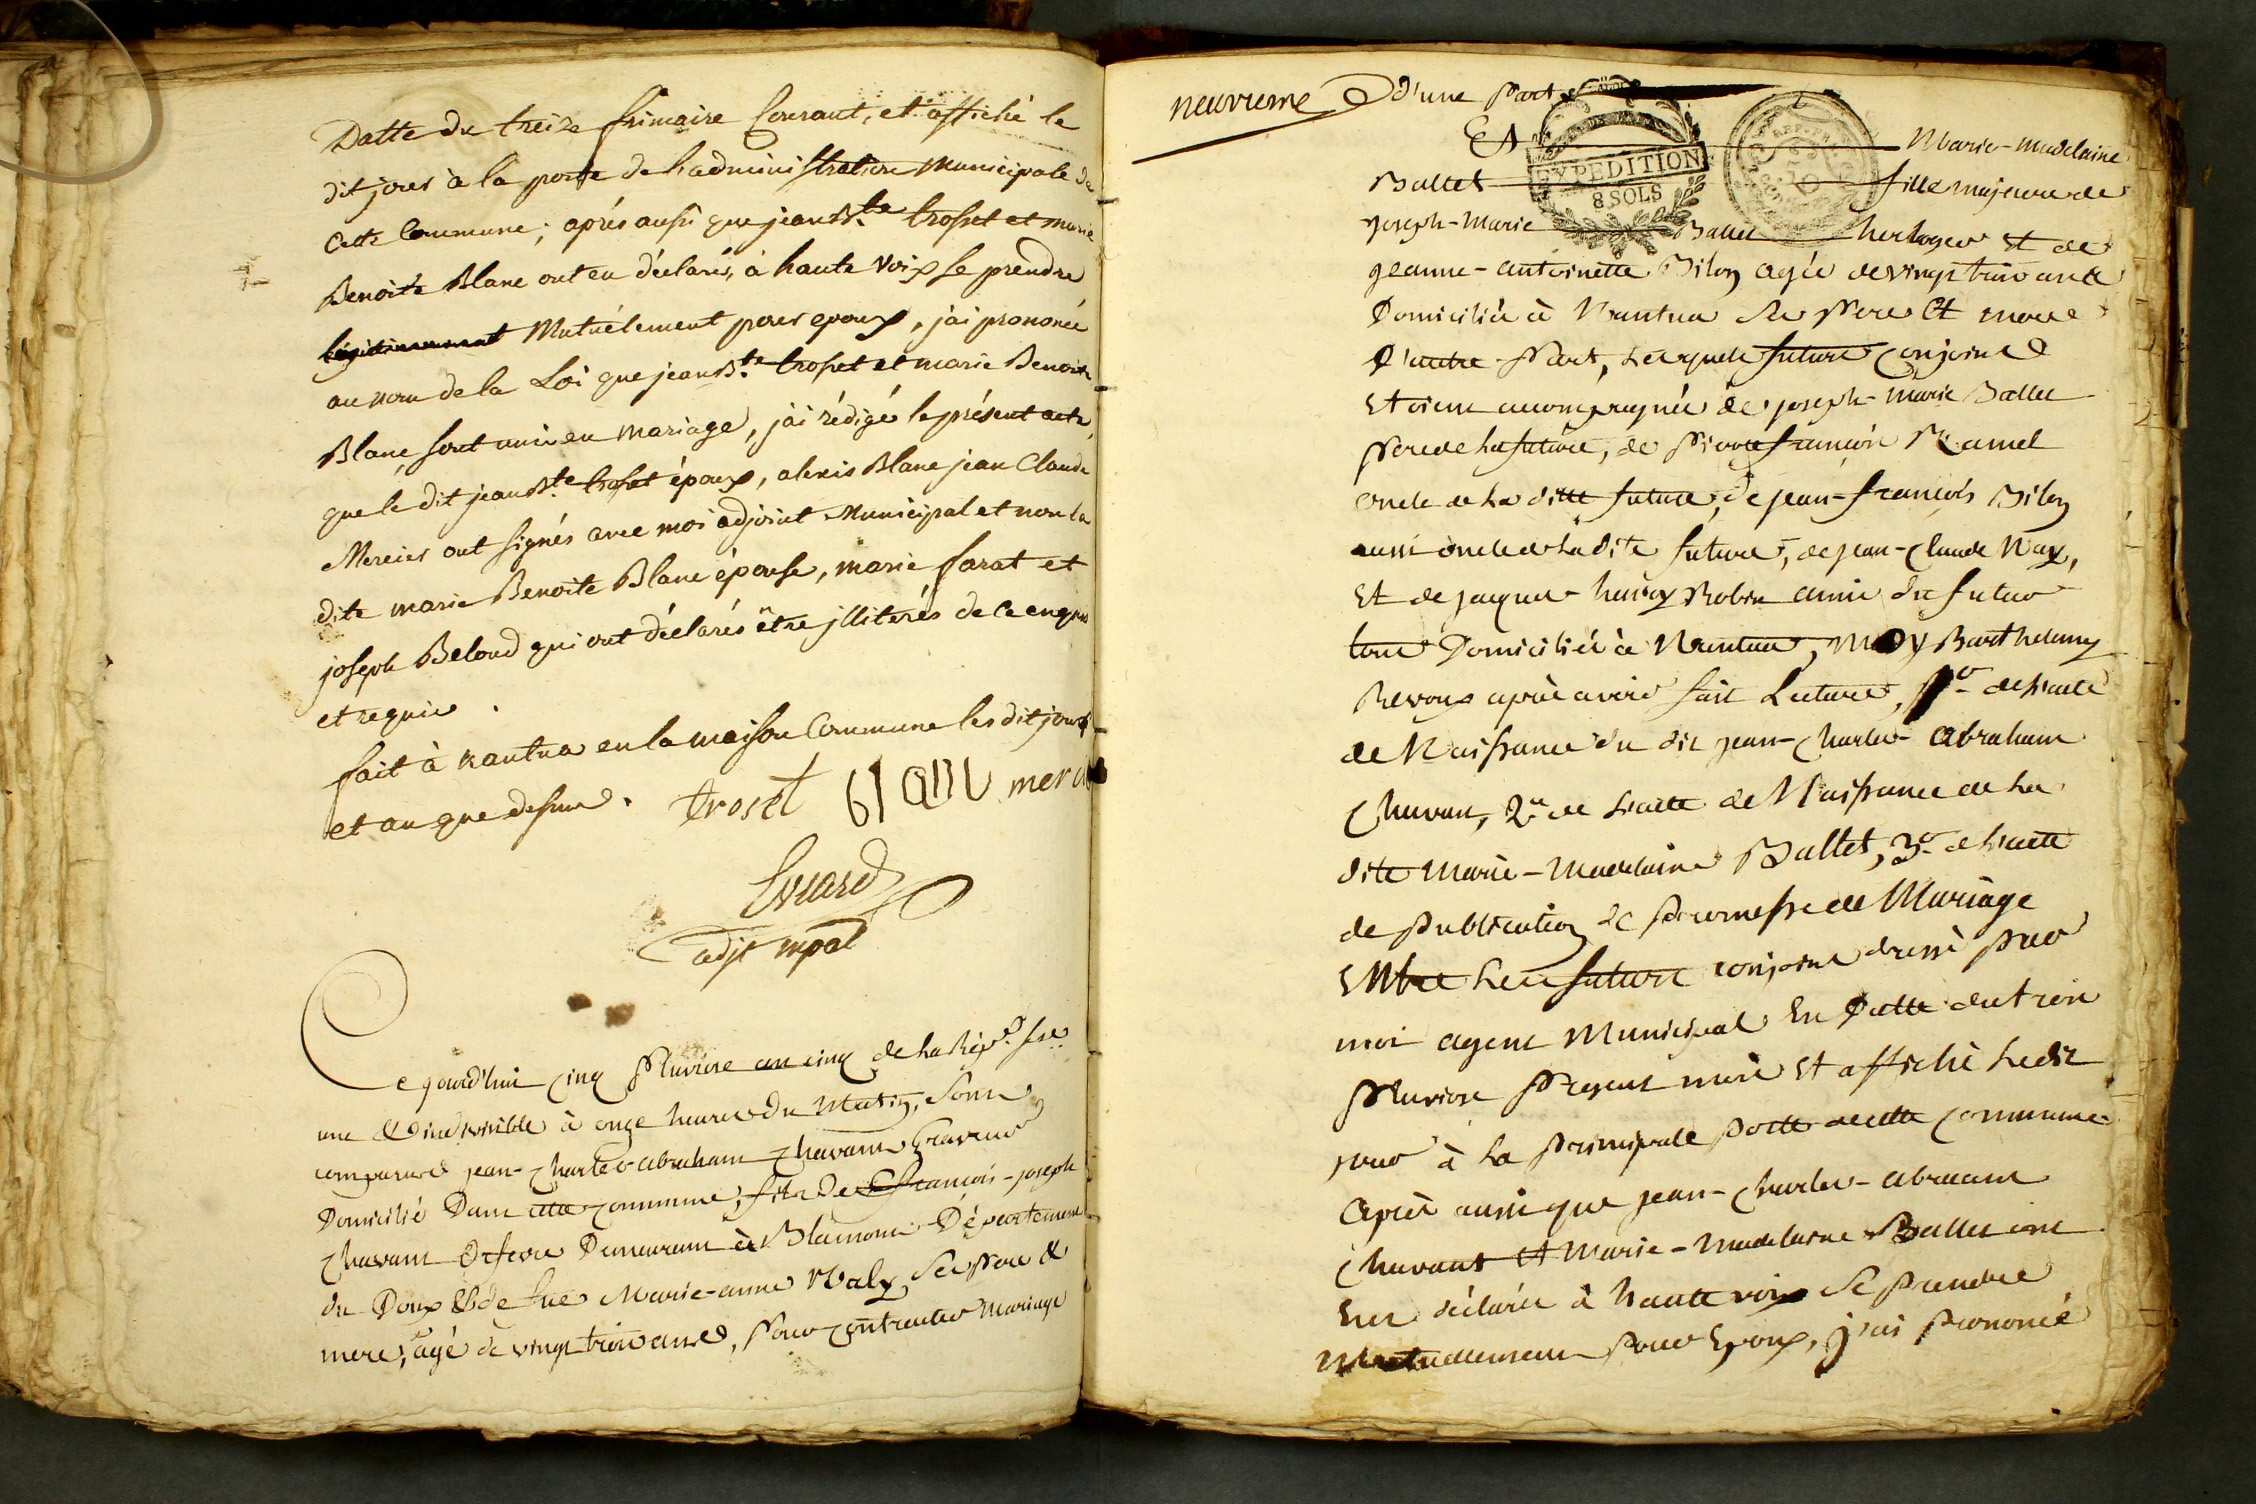 Datte du treize frimaire Courant, et affiché le
dit jour à la porte de l'administration Municipale de
Cette Commune; aprés aussi que jean B.te trosset et marie
Benoite Blanc ont eu déclarés, à haute voix se prendre
Mutuélement pour epoux, j'ai prononcé
au nom de la Loi que jean B.te trosset et marie Benoite
Blanc sont unis en mariage, j'ai rédigé le présent acte,
que le dit jean B.te trosset époux, alexis Blanc jean Claude
Mercier ont signés avec moi adjoint Municipal et non la
dite marie Benoite Blanc épouse, marie farat et
joseph Beloud qui ont déclarés être jlliterés de ce enquis
et requis.
fait à nantua en la maison Commune les dit jour
et an que dessus. troset blanc mercier
Evrard
adjt mpal
Ce jourd'hui cinq Pluviose an cinq de la Rép.e fse
une & indivisible à onze heures du Matin, sont
comparus jean-Charles-abraham Chavant Graveur
Domicilié Dans cette commune, fils de François-joseph
Chavant Orfevre Demeurant à Blamont Département
du Doux & de fue Marie-anne Valy ses Pere &
mere, agé de vingt trois ans, Pour contracter Mariage
neuvieme d'une Part
Et Marie-Madelaine
Ballet fille majeure de
joseph-Marie Ballet horloger Et de
jeanne-antoinette Bilon agée de vingt trois ans
Domiciliée à Nantua ses Pere Et mere
D'autre Part, Lesquels futurs conjoins
Etoient accompagnés de joseph-Marie Ballet
Pere de la future, de Pierre françois Ramel
oncle de la ditte future, de jean-françois Bilon
aussi oncle de la dite future, de jean-Claude
Et de jacques-henry Robin amis du futur
tous Domiciliés à Nantua, Moy Barthelemy
Revoux après avoir fait Lecture, 1.o de l'acte
de Naissance du dit jean-Charles-abraham
Chavant, 2.o de L'acte de Naissance de la
dite Marie-Madelaine Ballet, 3.o de l'acte
de Publication de Promesse de Mariage
Entre Les futurs conjoins dressé Par
moi agent Municipal En Datte du trois
Pluviose Present mois Et affiché Ledit
jour à la Principale Porte de cette commune
après aussi que jean-Charles-abraam
Chavant Et Marie-Madelaine Ballet ont
Eus déclarés à haute voix se Prendre
Mutuellement Pour Epoux, j'ai Prononcé
EXPEDITION
8 SOLS
REP. FRA.